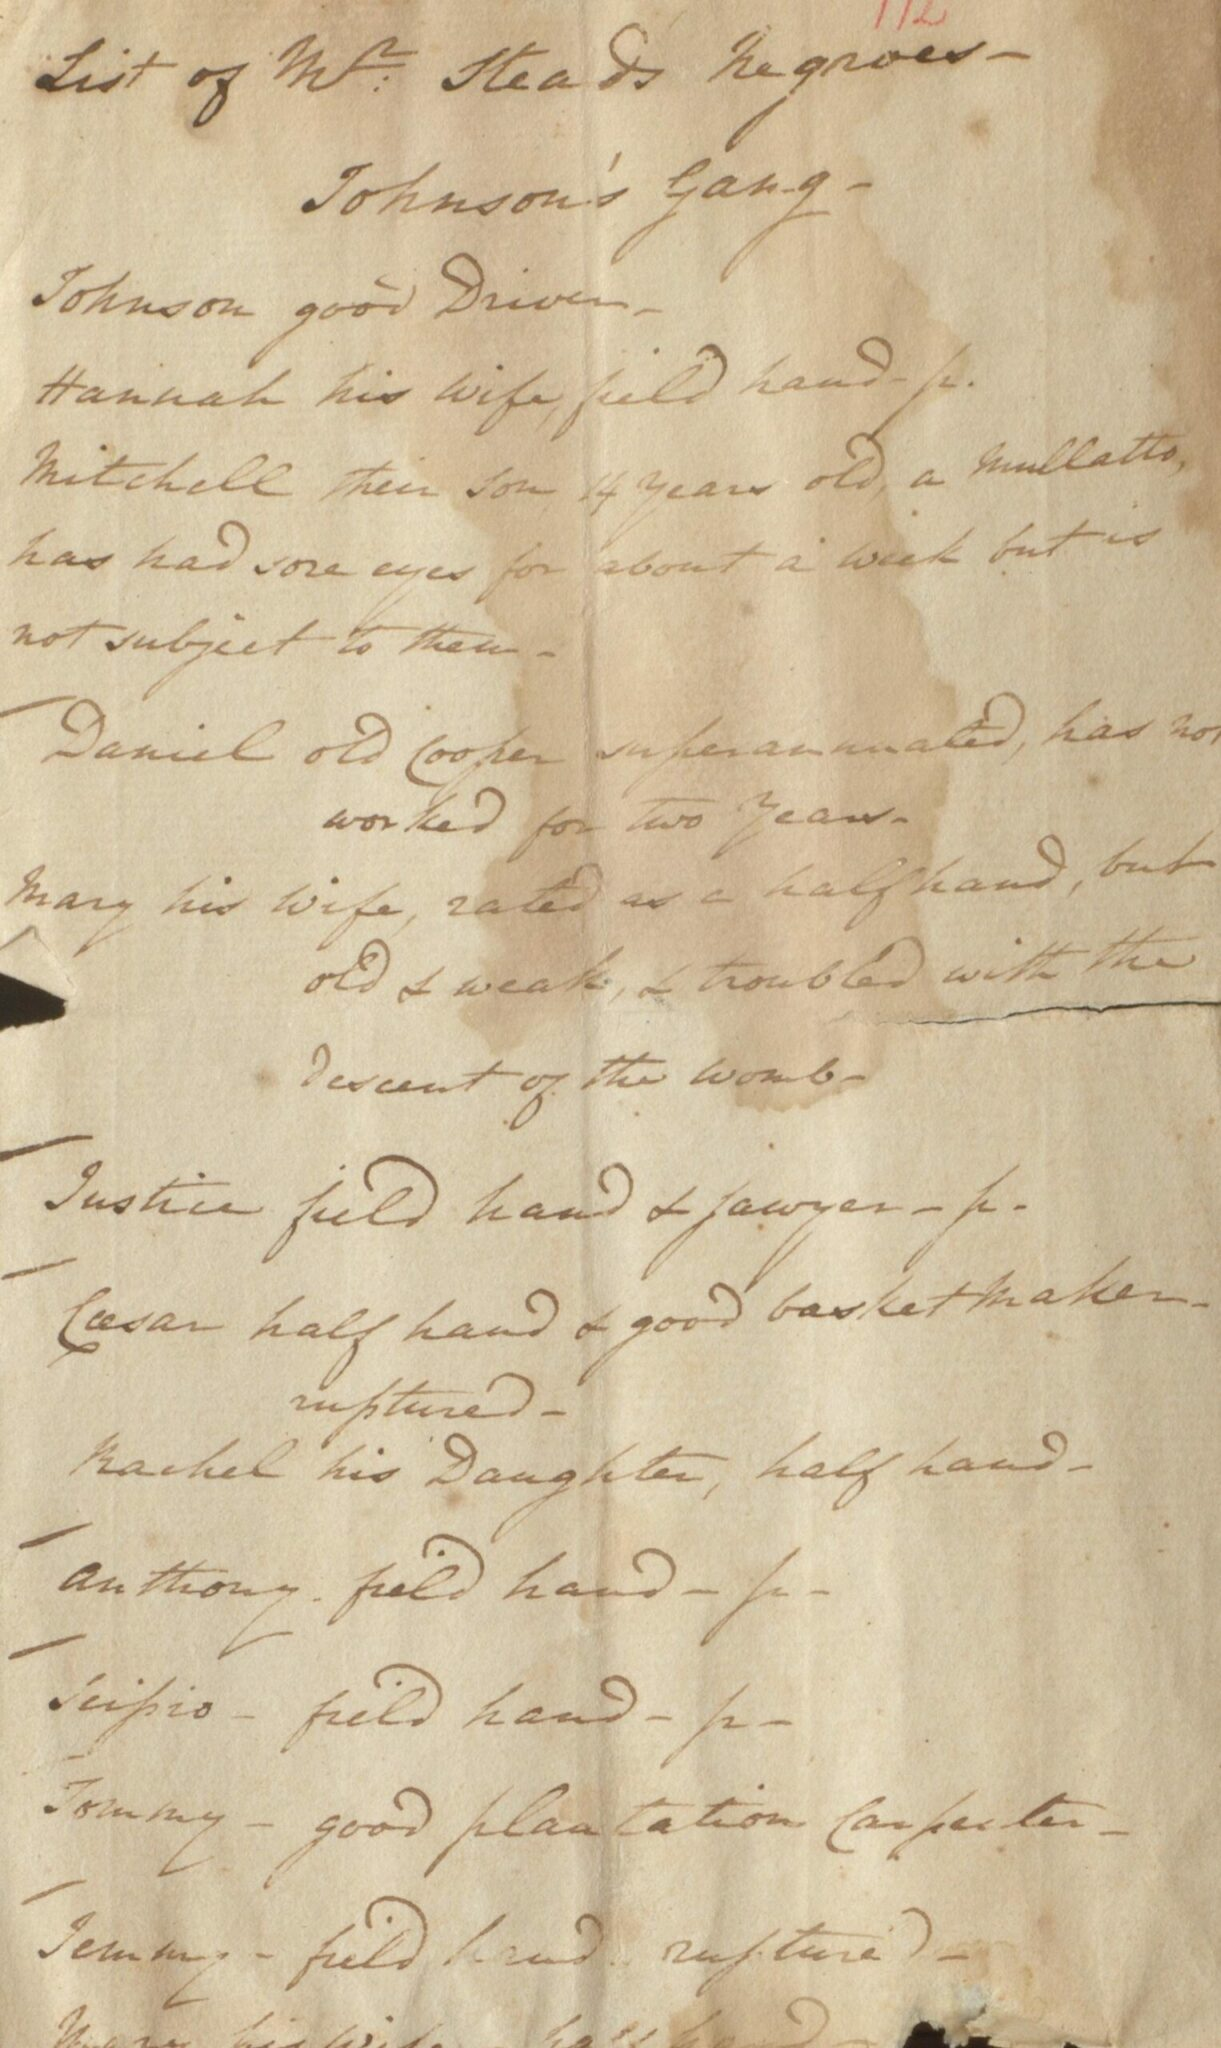 112
List of Mr: Stead's Negroes-
Johnson's Gang-
Johnson good Driver-
Hannah his wife, field hand- p.
Mitchell their son, 14 years old, a Mullatto,
has had sore eyes for about a week but is
not subject to them-
Daniel old Cooper superannuated, has not
worked for two Years-
Mary his wife, rated as a half hand, but
old & weak, & troubled with the
descent of the womb-
Justice field hand & sawyer- p-
Cæsar half hand & good basket maker-
ruptured-
Rachel his Daughter, half hand-
Anthony- field hand- p-
Scipio- field hand- p-
Tommy- good plantation Carpenter-
Jemmy- field hand- ruptured-
his wife- half hand-